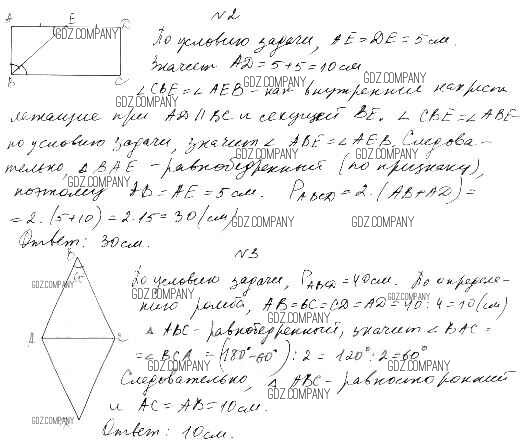 N2
A E D
B C
По условию задачи, AE = DE = 5 см.
Значит AD = 5 + 5 = 10 см
∠CBE = ∠AEB – как внутренние накрест
лежащие при AD || BC и секущей BE. ∠CBE = ∠ABE
по условию задачи, значит ∠ABE = ∠AEB. Следова-
тельно, △BAE – равнобедренный (по признаку),
поэтому AB = AE = 5 см. P ABCD = 2·(AB+AD) =
= 2·(5+10) = 2·15 = 30 (см)
Ответ: 30 см.
N3
По условию задачи, P ABCD = 40 см. По определе-
нию ромба, AB = BC = CD = AD = 40 : 4 = 10 (см)
△ABC – равнобедренный, значит ∠BAC =
= ∠BCA = (180° – 60°) : 2 = 120° : 2 = 60°
Следовательно, △ABC – равносторонний
и AC = AB = 10 см.
Ответ: 10 см.
GDZ.COMPANY